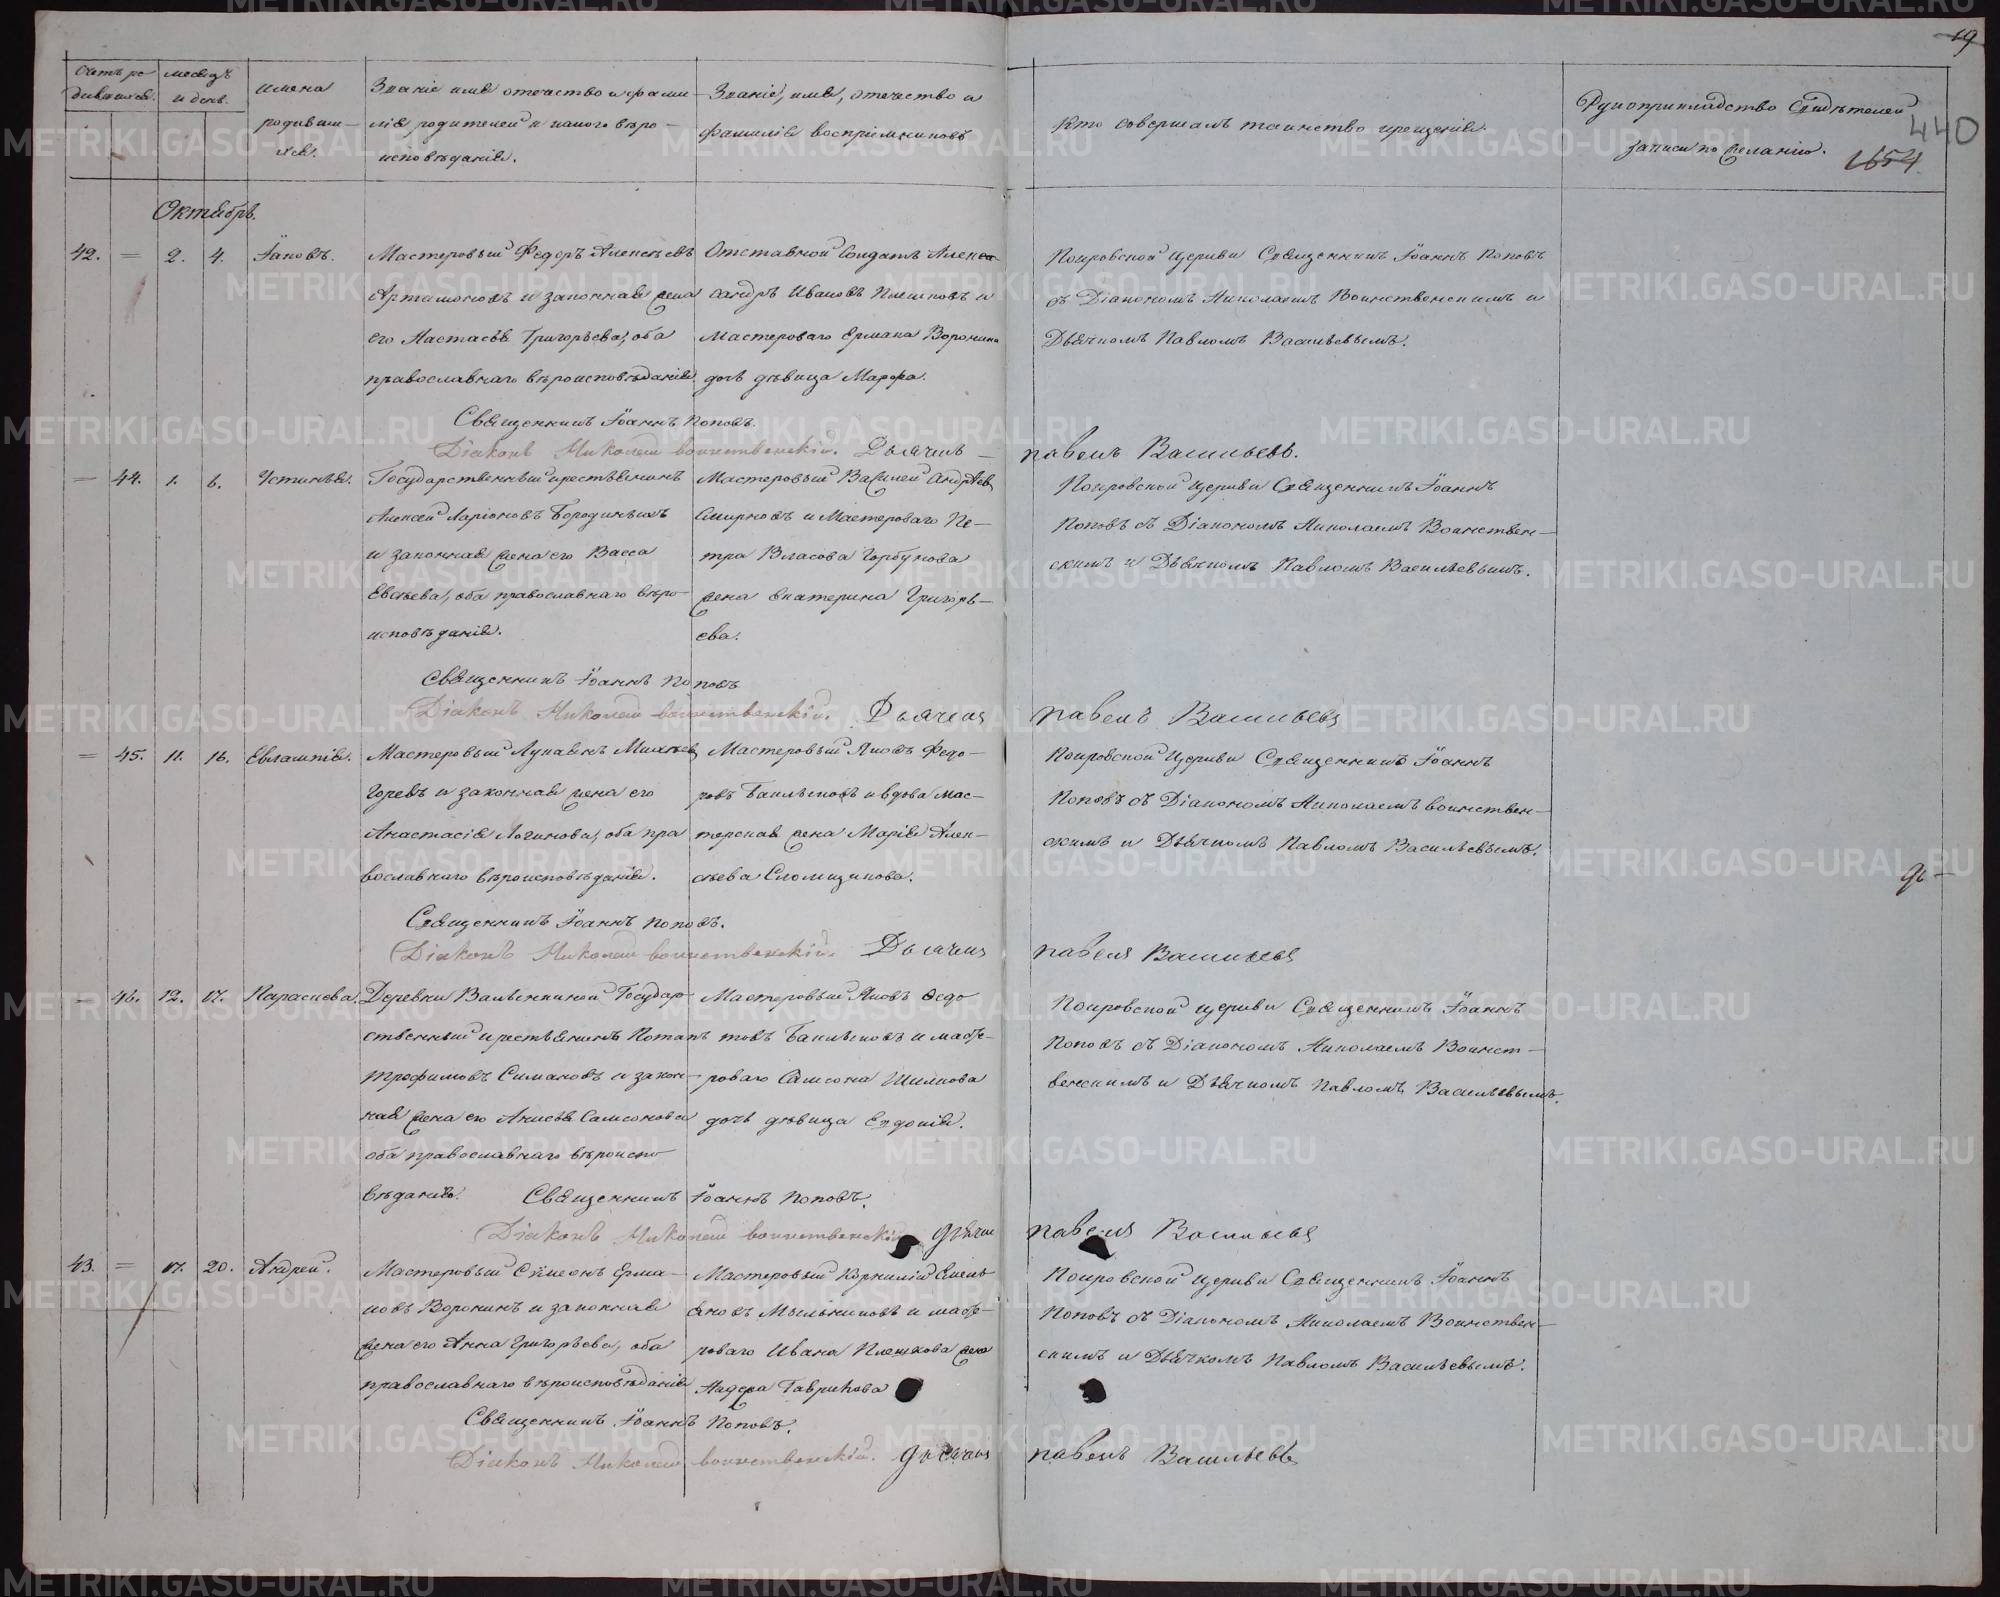 19
440
1654
Счетъ ро
дившихся.
месяцъ
и день.
имена
родивши–
хся.
Званіе имя отечество и фами–
лія родителей и какого веро–
исповѣданія.
Званіе, имя, отечество и
фамилія воспріемниковъ
Кто совершалъ таинство крещенія.
Рукоприкладство Свидѣтелей
записи по желанію.
Октябрь.
42. = 2. 4. Іаковъ.
Мастеровый Федоръ Алексѣевъ
Артамоновъ и законная жена
его Настасья Григорьева, оба
православнаго вѣроисповѣданія.
Отставной Солдатъ Алекса
сандръ Ивановъ Плешковъ и
Мастероваго Ермака Воронина
дочь дѣвица Марфа.
Покровской Церкви Священникъ Іоаннъ Поповъ
съ Діакономъ Николаемъ Воинственскимъ и
Дьячкомъ Павломъ Васильевымъ.
Священникъ Іоаннъ Поповъ.
Діаконъ Николай воинственскій. Дьячекъ – павелъ Васильевъ.
= 44. 1. 6. Устинья.
Государственный крестьянинъ
Алексей Ларіоновъ Бородинъихъ
и законная жена его Васса
Евсѣева, оба православнаго вѣро–
исповѣданія.
Мастеровый Василей Андрѣевъ
Смирновъ и Мастероваго Пе–
тра Власова Горбунова
жена Екатерина Григорь–
ева.
Покровской Церкви Священникъ Іоаннъ
Поповъ съ Діакономъ Николаемъ Воинствен–
скимъ и Дьячкомъ Павломъ Васильевымъ.
Священникъ Іоаннъ Поповъ
Діаконъ Николай воинственскій. Дьячекъ павелъ Васильевъ
= 45. 11. 16. Евлампія.
Мастеровый Лукаянъ Михѣевъ
Горевъ и законная жена его
Анастасія Логинова, оба пра
вославнаго вѣроисповѣданія.
Мастеровый Яковъ Федо–
ровъ Бакльсковъ и вдова мас–
терская жена Марія Алек–
сѣева Сломщикова.
Покровской Церкви Священникъ Іоаннъ
Поповъ съ Діакономъ Николаемъ воинствен–
скимъ и Дьячкомъ Павломъ Васильевымъ.
Священникъ Іоаннъ Поповъ.
Діаконъ Николай воинственскій. Дьячекъ павелъ Васильевъ
– 46. 12. 17. Параскева.
Деревни Государ–
ственный крестьянинъ Потапъ
Трофимовъ Симаковъ и закон–
ная жена его Анисья Самсонова
оба православнаго вѣроиспо
вѣданія.
Мастеровый Яковъ Ѳедо
товъ и масте–
роваго Самсона Шилкова
дочь дѣвица Евдокія.
Покровской Церкви Священникъ Іоаннъ
Поповъ съ Діакономъ Николаемъ Воинст–
венскимъ и Дьячкомъ Павломъ Васильевымъ.
Священникъ Іоаннъ Поповъ.
Діаконъ Николай воинственскій дьячекъ павелъ Васильевъ
43. = 17. 20. Андрей.
Мастеровый Сѵмеонъ Ерма–
ковъ Воронинъ и законная
жена его Анна Григорьева, оба
православнаго вѣроисповѣданія
Мастеровый Корнилій Емель
яновъ Мыльниковъ и масте–
роваго Ивана Плешкова жена
Гаврилова
Покровской Церкви Священникъ Іоаннъ
Поповъ съ Діакономъ Николаемъ Воинствен–
скимъ и Дьячкомъ Павломъ Васильевымъ.
Священникъ Іоаннъ Поповъ.
Діаконъ Николай воинственскій. дьячекъ павелъ Васильевъ
METRIKI.GASO-URAL.RU